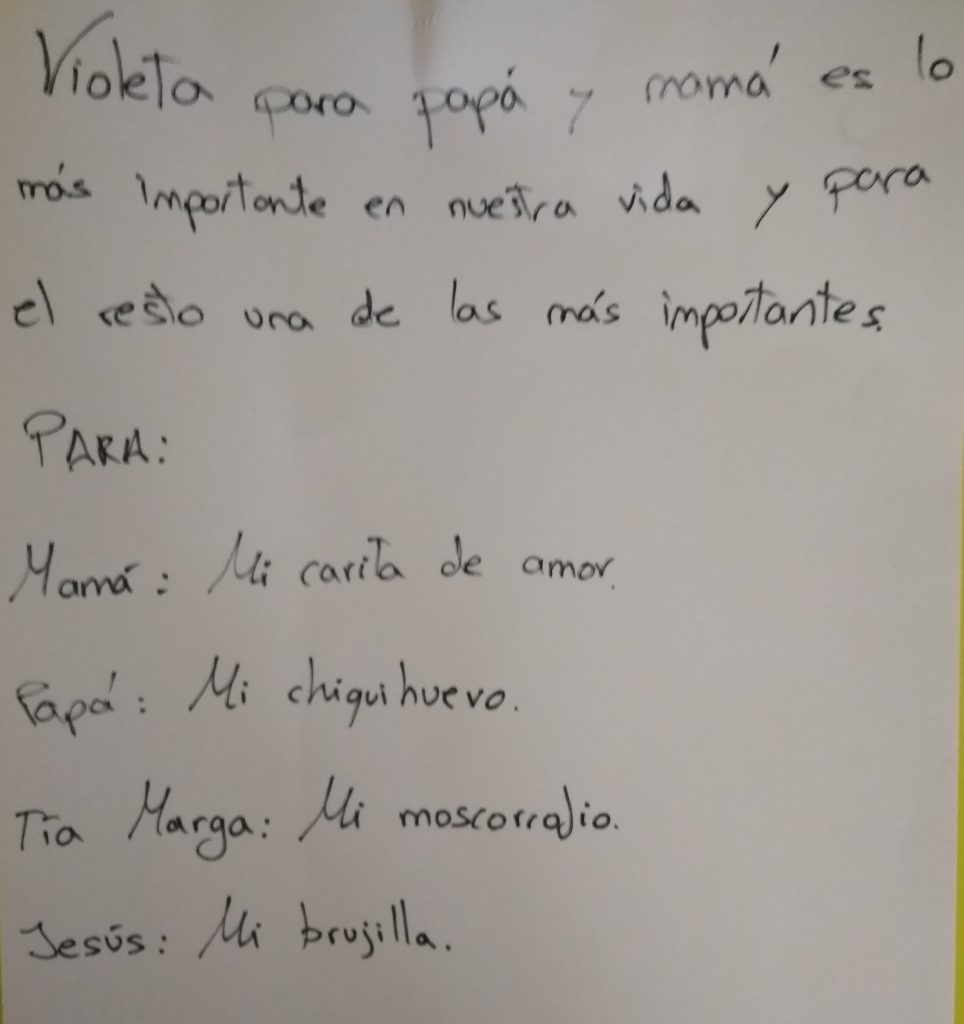 Violeta para papá y mamá es lo
más importante en nuestra vida y para
el resto una de las más importantes.
PARA:
Mamá: Mi carita de amor.
Papá: Mi chiquihuevo.
Tía Marga: Mi moscorrofio.
Jesús: Mi brujilla.